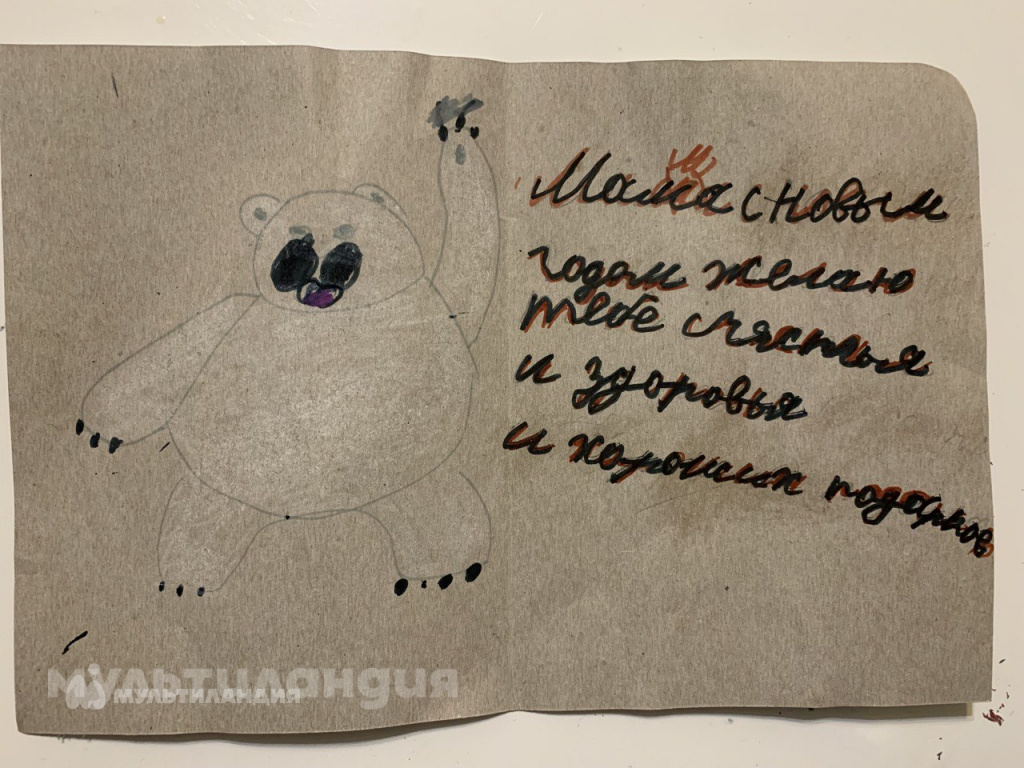 Мама с новым
годом желаю
тебе счястья
и здоровья
и хороших подарков
мультиландия
мультиландия